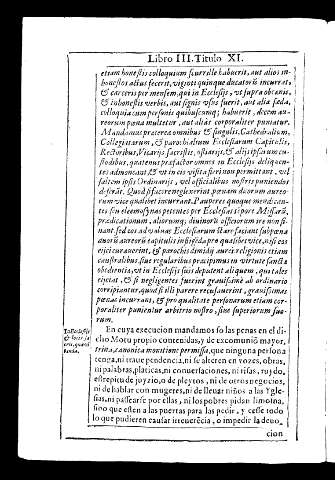 Libro III. Titulo XI.
etiam honestis colloquium scurrile habuerit, aut alios in-
honestos actus fecerit, viginti quinque ducatorũ incurrat,
& carceris per mensem, qui in Ecclesijs, vt supra obcœnis,
& inhonestis verbis, aut signis vsus fuerit, aut alia fœda,
colloquia cum personis quibuscunq; habuerit, decem au-
reorum pœna multetur, aut aliàs corporaliter puniatur.
Mandamus præterea omnibus & singulis, Cathedralium,
Collegiatarum, & parochialium Ecclesiarum Capitulis,
Rectoribus, Vicarijs, Sacristis, ostiarijs, & alijs ipsarum cu-
stodibus, quatenus præfactor omnes in Ecclesijs delinquen-
tes admoneant, & vt in eis vistia fieri non permittant, vel
saltem ipsis Ordinarijs, vel officialibus nostris puniendos
deferãt. Quod si facere neglexerint pœnam duorum aureo-
rum vice qualibet incurrant. Pauperes quoque mendican-
tes seu eleemosynas petentes per Ecclesias tẽpore Missarũ,
prædicationum, aliorumq; diuinorũ officiorum ire non si-
nant, sed eos ad valuas Ecclesiarum stare faciant sub pœna
duorũ aureorũ
rijci curauerint, & parochis
caustralibus, siue regularibus præcipimus in virtute sancta
obedientia, vt in Ecclesijs suis deputent aliquem, qui tales
eijciat, & si negligentes fuerint grauissimè ab ordinario
corripiantur, quod si illi parere recusauerint, grauissimas
pœnas incurrant, & pro qualitate personarum etiam cor-
poraliter puniantur arbitrio nostro, siue superiorum suo-
rum.
En cuya execucion mandamos so las penas en el di-
cho Motu proprio contenidas, y de excomunió mayor,
trina, canonica monitione permissa, que ninguna persona
tenga, ni trate pendencia, ni se alteren en vozes, obras,
ni palabras, platicas, ni conuersaciones, ni risas, ruydo,
estrepitu de joyzio, o de pleytos, ni de otros negocios,
ni de hablar con mugeres, ni de lleuar niños a las Ygle-
sias, ni passearse por ellas, ni los pobres pidan limosna,
sino que esten a las puertas para las pedir, y cesse todo
lo que pudieren causar irreuerẽcia, o impedir la deuo-
cion